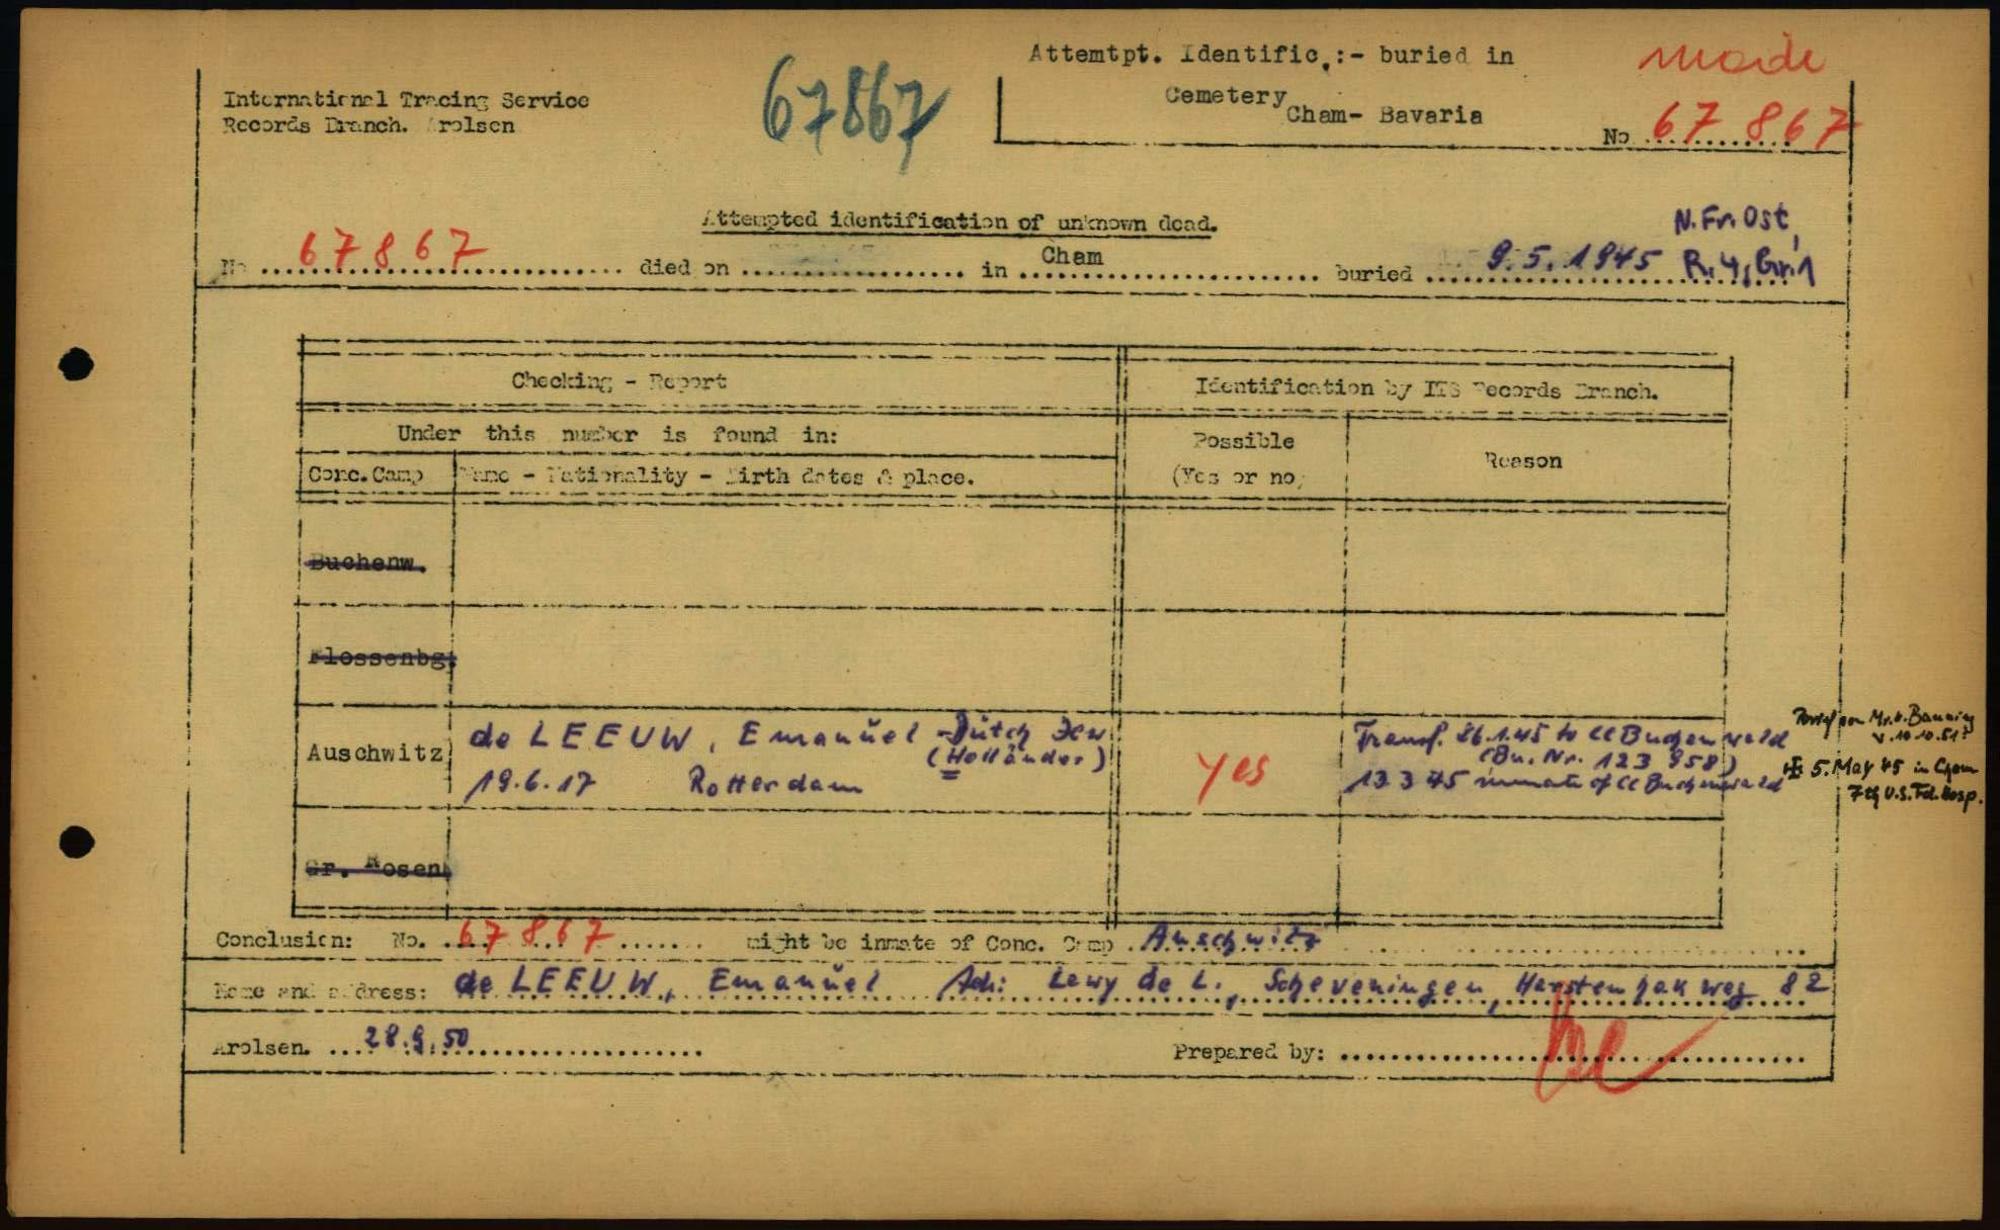 Attemtpt. Identific.:- buried in
made
International Tracing Service
67867
Cemetery
Cham- Bavaria
Records Branch. Arolsen
No 67 867
Attempted identification of unknown dead.
N.Fr.Ost,
No 67867 died on in Cham buried 9.5.1945 R.4,Gr.1
Checking - Report
Identification by ITS Records Branch.
Under this number is found in:
Possible
(Yes or no)
Reason
Conc.Camp
Name - Nationality - Birth dates & place.
Buchenw.
Flossenbg.
Auschwitz
de LEEUW, Emanuel - Dutch Jew
(Holländer)
19.6.17 Rotterdam
yes
Transf. 26.1.45 to CC Buchenwald
(Bu. Nr. 123 858)
13 3 45 inmate of CC Buchenwald
v. 10.10.51
5. May 45 in Cham
7th U.S. Fd. Hosp.
Gr. Rosen
Conclusion: No. 67867 might be inmate of Conc. Camp Auschwitz
Name and address: de LEEUW, Emanuel Adr: Lewy de L., Scheveningen, 82
Arolsen. 28.9.50
Prepared by: